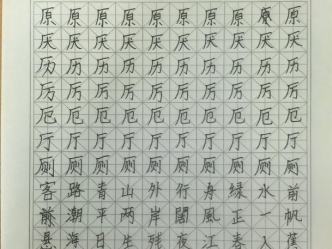 原原原原原原原原原原
厌厌厌厌厌厌厌厌厌厌
历历历历历历历历历历
厉厉厉厉厉厉厉厉厉厉
厄厄厄厄厄厄厄厄厄厄
厅厅厅厅厅厅厅厅厅厅
厕厕厕厕厕厕厕厕厕厕
客路青山外行舟绿水前
前潮平两岸闊風正一帆
懸海日生残夜江春入舊